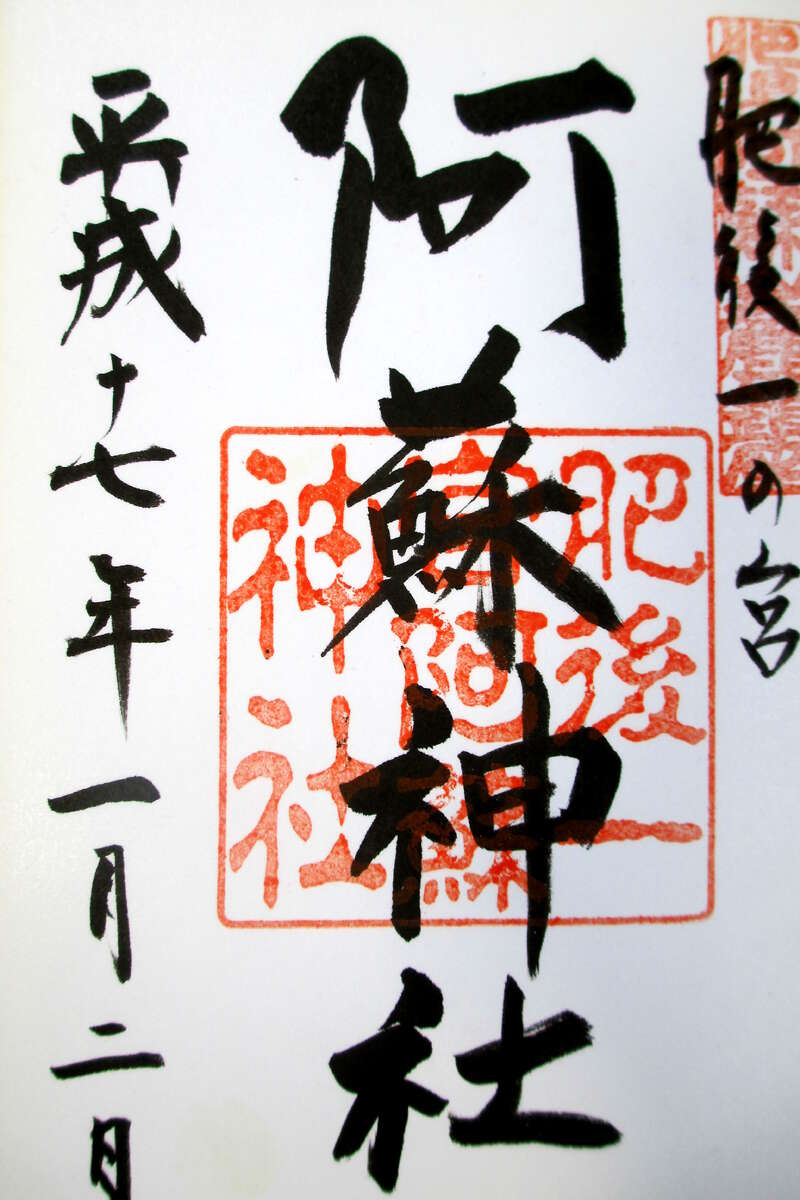 肥後一の宮
阿蘇神社
平成十七年一月二日
肥後一
宮阿蘇
神社